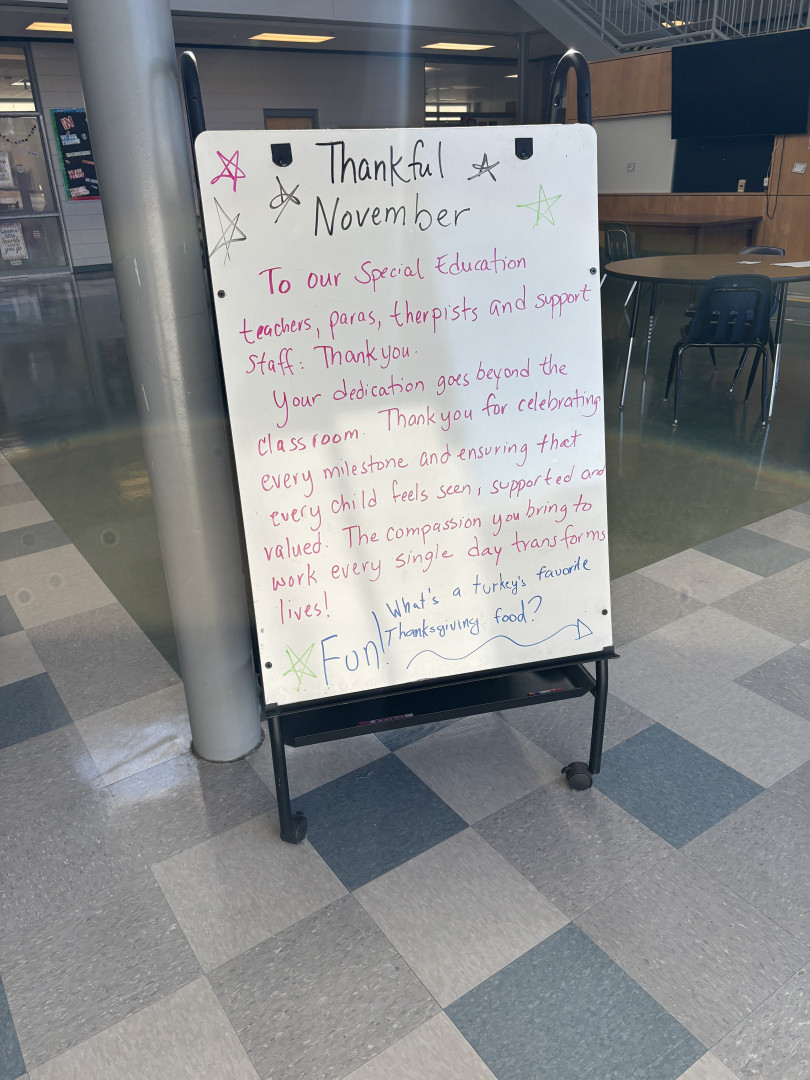 Thankful
November
To our Special Education
teachers, paras, therpists and support
staff: Thank you.
Your dedication goes beyond the
classroom. Thank you for celebrating
every milestone and ensuring that
every child feels seen, supported and
valued. The compassion you bring to
work every single day transforms
lives!
Fun!
What's a turkey's favorite
Thanksgiving food?